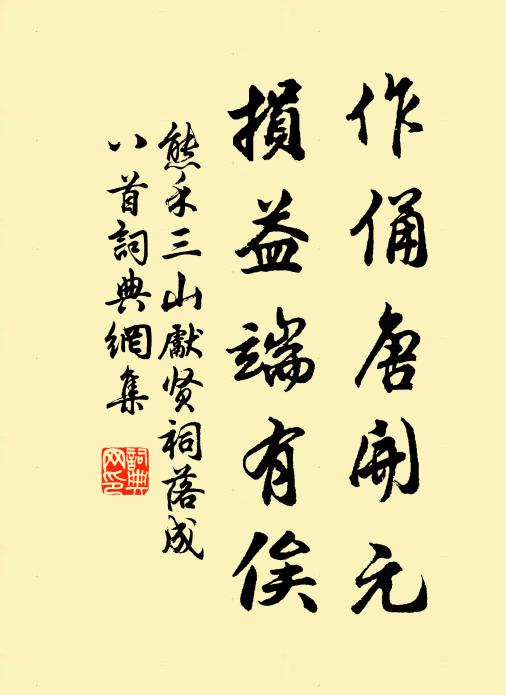 作俑唐開元
損益端有俟
熊禾三山獻贤祠落成
八首詞典網集
詞典网印